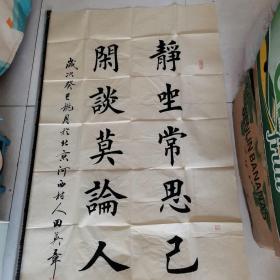 靜坐常思己
閑談莫論人
歲次癸巳桃月於北京河西村人田英章